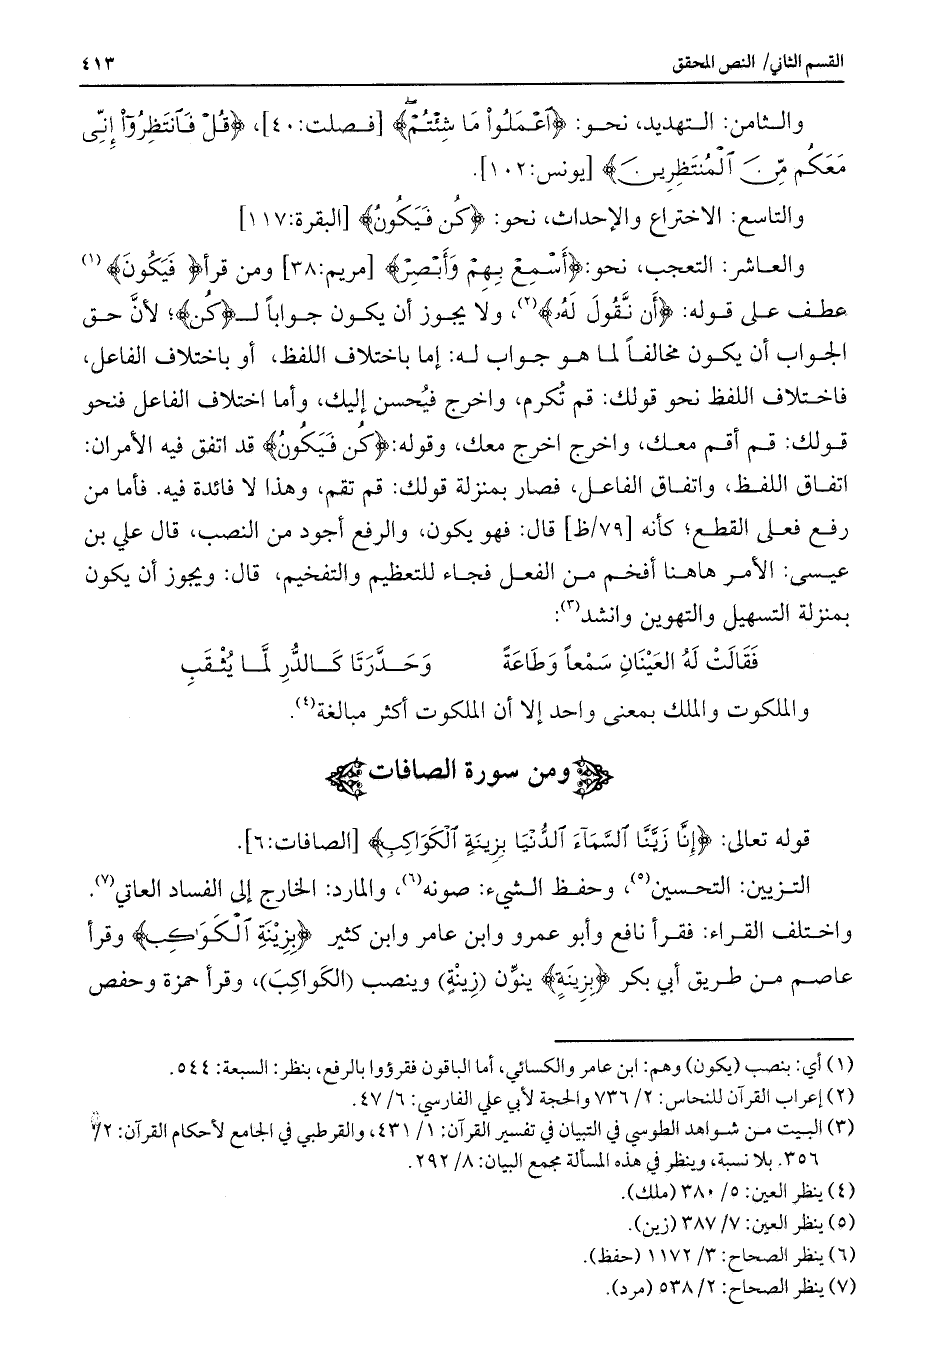 القسم الثاني/ النص المحقق ٤١٣
والثامن: التهديد، نحو: ﴿ٱعْمَلُوا۟ مَا شِئْتُمْ﴾ [فصلت:٤٠]، ﴿قُلْ فَٱنتَظِرُوٓا۟ إِنِّى
مَعَكُم مِّنَ ٱلْمُنتَظِرِينَ﴾ [يونس:١٠٢].
والتاسع: الاختراع والإحداث، نحو: ﴿كُن فَيَكُونُ﴾ [البقرة:١١٧]
والعاشر: التعجب، نحو:﴿أَسْمِعْ بِهِمْ وَأَبْصِرْ﴾ [مريم:٣٨] ومن قرأ﴿ فَيَكُونَ﴾ (١)
عطف على قوله: ﴿أَن نَّقُولَ لَهُۥ﴾(٢)، ولا يجوز أن يكون جواباً لـ﴿كُن﴾؛ لأنَّ حق
الجواب أن يكون مخالفاً لما هو جواب له: إما باختلاف اللفظ، أو باختلاف الفاعل،
فاختلاف اللفظ نحو قولك: قم تُكرم، واخرج فيُحسن إليك، وأما اختلاف الفاعل فنحو
قولك: قم أقم معك، واخرج اخرج معك، وقوله:﴿كُن فَيَكُونُ﴾ قد اتفق فيه الأمران:
اتفاق اللفظ، واتفاق الفاعل، فصار بمنزلة قولك: قم تقم، وهذا لا فائدة فيه. فأما من
رفع فعلى القطع؛ كأنه [٧٩/ظ] قال: فهو يكون، والرفع أجود من النصب، قال علي بن
عيسى: الأمر هاهنا أفخم من الفعل فجاء للتعظيم والتفخيم، قال: ويجوز أن يكون
بمنزلة التسهيل والتهوين وانشد(٣):
فَقَالَتْ لَهُ العَيْنَانِ سَمْعاً وَطَاعَةً وَحَدَّرَتَا كَالدُّرِ لَّمَا يُثْقَبِ
والملكوت والملك بمعنى واحد إلا أن الملكوت أكثر مبالغة(٤).
ومن سورة الصافات
قوله تعالى: ﴿إِنَّا زَيَّنَّا ٱلسَّمَآءَ ٱلدُّنْيَا بِزِينَةٍ ٱلْكَوَاكِبِ﴾ [الصافات:٦].
التزيين: التحسين(٥)، وحفظ الشيء: صونه(٦)، والمارد: الخارج إلى الفساد العاتي(٧).
واختلف القراء: فقرأ نافع وأبو عمرو وابن عامر وابن كثير ﴿بِزِيْنَةِ ٱلْكَوَاكِبِ﴾ وقرأ
عاصم من طريق أبي بكر ﴿بِزِينَةٍ﴾ ينوِّن (زِينْةٍ) وينصب (الكَواكِبَ)، وقرأ حمزة وحفص
(١) أي: بنصب (يكون) وهم: ابن عامر والكسائي، أما الباقون فقرؤوا بالرفع، بنظر: السبعة: ٥٤٤.
(٢) إعراب القرآن للنحاس: ٢/ ٧٣٦ والحجة لأبي علي الفارسي: ٦/ ٤٧.
(٣) البيت من شواهد الطوسي في التبيان في تفسير القرآن: ١/ ٤٣١، والقرطبي في الجامع لأحكام القرآن: ٢/
٣٥٦. بلا نسبة، وينظر في هذه المسألة مجمع البيان: ٨/ ٢٩٢.
(٤) ينظر العين: ٥/ ٣٨٠ (ملك).
(٥) ينظر العين: ٧/ ٣٨٧ (زين).
(٦) ينظر الصحاح: ٣/ ١١٧٢ (حفظ).
(٧) ينظر الصحاح: ٢/ ٥٣٨ (مرد).